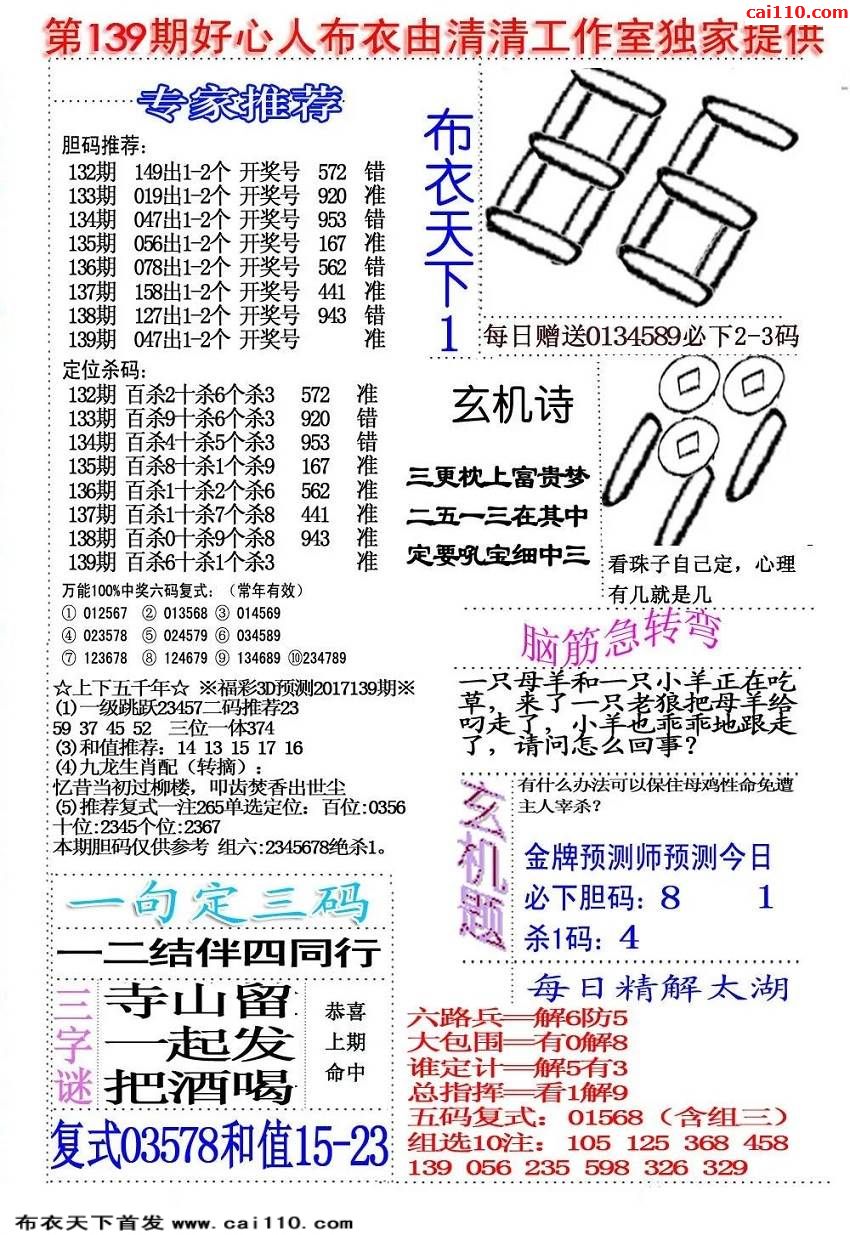 cai110.com
第139期好心人布衣由清清工作室独家提供
专家推荐
胆码推荐:
132期 149出1-2个 开奖号 572 错
133期 019出1-2个 开奖号 920 准
134期 047出1-2个 开奖号 953 错
135期 056出1-2个 开奖号 167 准
136期 078出1-2个 开奖号 562 错
137期 158出1-2个 开奖号 441 准
138期 127出1-2个 开奖号 943 错
139期 047出1-2个 开奖号 准
定位杀码:
132期 百杀2十杀6个杀3 572 准
133期 百杀9十杀6个杀3 920 错
134期 百杀4十杀5个杀3 953 错
135期 百杀8十杀1个杀9 167 准
136期 百杀1十杀2个杀6 562 准
137期 百杀1十杀7个杀8 441 准
138期 百杀0十杀9个杀8 943 准
139期 百杀6十杀1个杀3 准
万能100%中奖六码复式:(常年有效)
① 012567 ② 013568 ③ 014569
④ 023578 ⑤ 024579 ⑥ 034589
⑦ 123678 ⑧ 124679 ⑨ 134689 ⑩234789
☆上下五千年☆ ※福彩3D预测2017139期※
(1)一级跳跃23457二码推荐23
59 37 45 52 三位一体374
(3)和值推荐: 14 13 15 17 16
(4)九龙生肖配(转摘):
忆昔当初过柳楼, 叩齿焚香出世尘
(5)推荐复式一注265单选定位: 百位:0356
十位:2345个位:2367
本期胆码仅供参考 组六:2345678绝杀1。
一句定三码
一二结伴四同行
三字谜
寺山留
一起发
把酒喝
恭喜
上期
命中
复式03578和值15-23
布衣天下1
86
每日赠送0134589必下2-3码
玄机诗
三更枕上富贵梦
二五一三在其中
定要吼宝细中三
看珠子自己定,心理
有几就是几
脑筋急转弯
一只母羊和一只小羊正在吃
草,来了一只老狼把母羊给
叼走了,小羊也乖乖地跟走
了,请问怎么回事?
玄机题
有什么办法可以保住母鸡性命免遭
主人宰杀?
金牌预测师预测今日
必下胆码: 8 1
杀1码: 4
每日精解太湖
六路兵==解6防5
大包围==有0解8
谁定计==解5有3
总指挥==看1解9
五码复式: 01568(含组三)
组选10注: 105 125 368 458
139 056 235 598 326 329
布衣天下首发 www.cai110.com